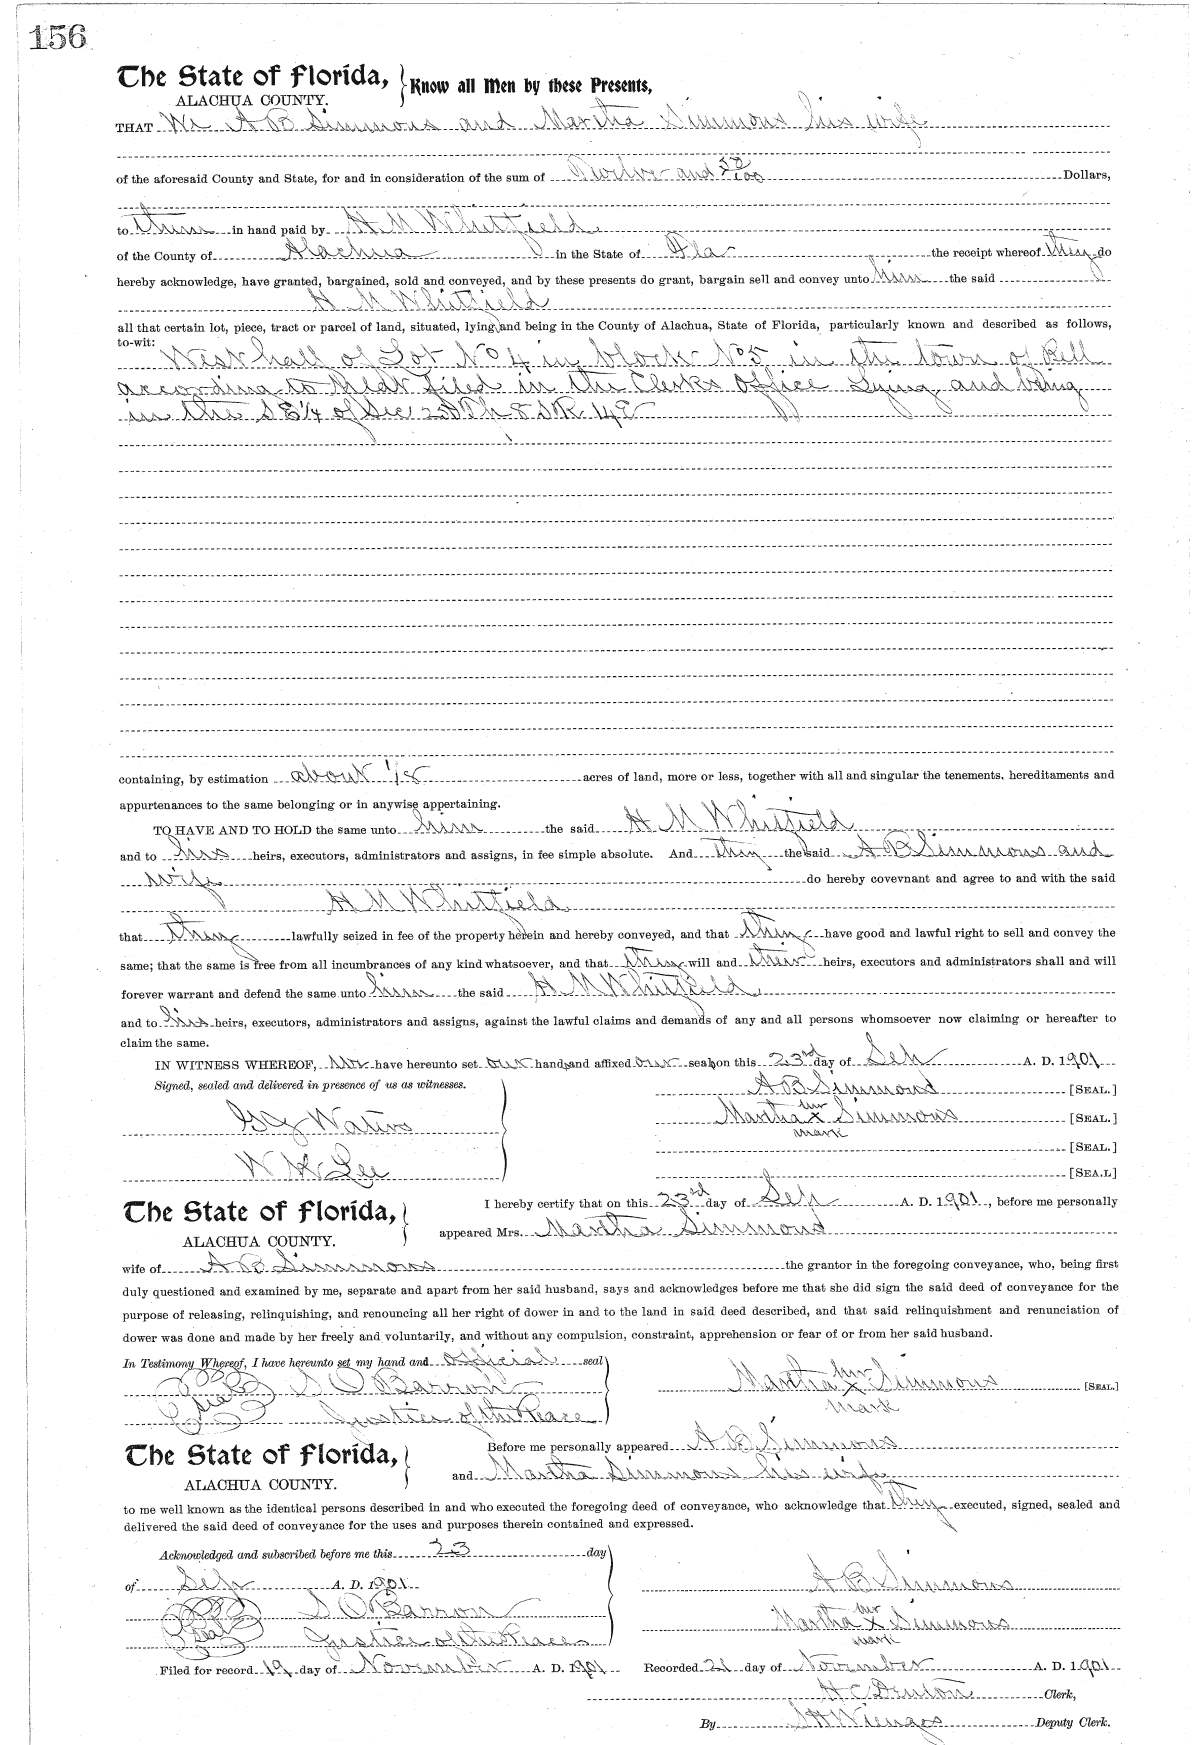 156
The State of Florida,
ALACHUA COUNTY.
Know all Men by these Presents,
THAT We A B Simmons and Martha Simmons his wife
of the aforesaid County and State, for and in consideration of the sum of Twelve and 50/100 Dollars,
to them in hand paid by H M Whitfield
of the County of Alachua in the State of Fla the receipt whereof they do
hereby acknowledge, have granted, bargained, sold and conveyed, and by these presents do grant, bargain sell and convey unto him the said
H M Whitfield
all that certain lot, piece, tract or parcel of land, situated, lying and being in the County of Alachua, State of Florida, particularly known and described as follows,
to-wit:
West half of Lot No 4 in block No 5 in the town of Bell
according to Plat filed in the Clerks Office Lying and being
in the S E 1/4 of Sec 25 Tp 8 S R 14 E
containing, by estimation about 1/8 acres of land, more or less, together with all and singular the tenements, hereditaments and
appurtenances to the same belonging or in anywise appertaining.
TO HAVE AND TO HOLD the same unto him the said H M Whitfield
and to his heirs, executors, administrators and assigns, in fee simple absolute. And they the said A B Simmons and
wife do hereby covevnant and agree to and with the said
H M Whitfield
that they lawfully seized in fee of the property herein and hereby conveyed, and that they have good and lawful right to sell and convey the
same; that the same is free from all incumbrances of any kind whatsoever, and that they will and their heirs, executors and administrators shall and will
forever warrant and defend the same unto him the said H M Whitfield
and to his heirs, executors, administrators and assigns, against the lawful claims and demands of any and all persons whomsoever now claiming or hereafter to
claim the same.
IN WITNESS WHEREOF, We have hereunto set our hands and affixed our seals on this 23rd day of Sep A. D. 1901
Signed, sealed and delivered in presence of us as witnesses.
A B Simmons [SEAL.]
Martha her x mark Simmons [SEAL.]
Waters
[SEAL.]
W K Lee
[SEA.L]
The State of Florida,
ALACHUA COUNTY.
I hereby certify that on this 23rd day of Sep A. D. 1901, before me personally
appeared Mrs. Martha Simmons
wife of A B Simmons the grantor in the foregoing conveyance, who, being first
duly questioned and examined by me, separate and apart from her said husband, says and acknowledges before me that she did sign the said deed of conveyance for the
purpose of releasing, relinquishing, and renouncing all her right of dower in and to the land in said deed described, and that said relinquishment and renunciation of
dower was done and made by her freely and voluntarily, and without any compulsion, constraint, apprehension or fear of or from her said husband.
In Testimony Whereof, I have hereunto set my hand and official seal
Seal S O Barron
Justice of the Peace
Martha her x mark Simmons [SEAL.]
The State of Florida,
ALACHUA COUNTY.
Before me personally appeared A B Simmons
and Martha Simmons his wife
to me well known as the identical persons described in and who executed the foregoing deed of conveyance, who acknowledge that they executed, signed, sealed and
delivered the said deed of conveyance for the uses and purposes therein contained and expressed.
Acknowledged and subscribed before me this 23 day
of Sep A. D. 1901
A B Simmons
Seal S O Barron
Martha her x mark Simmons
Justice of the Peace
Filed for record 19 day of November A. D. 1901 Recorded 21 day of November A. D. 1901
H C Denton Clerk,
By S H Wienges Deputy Clerk.